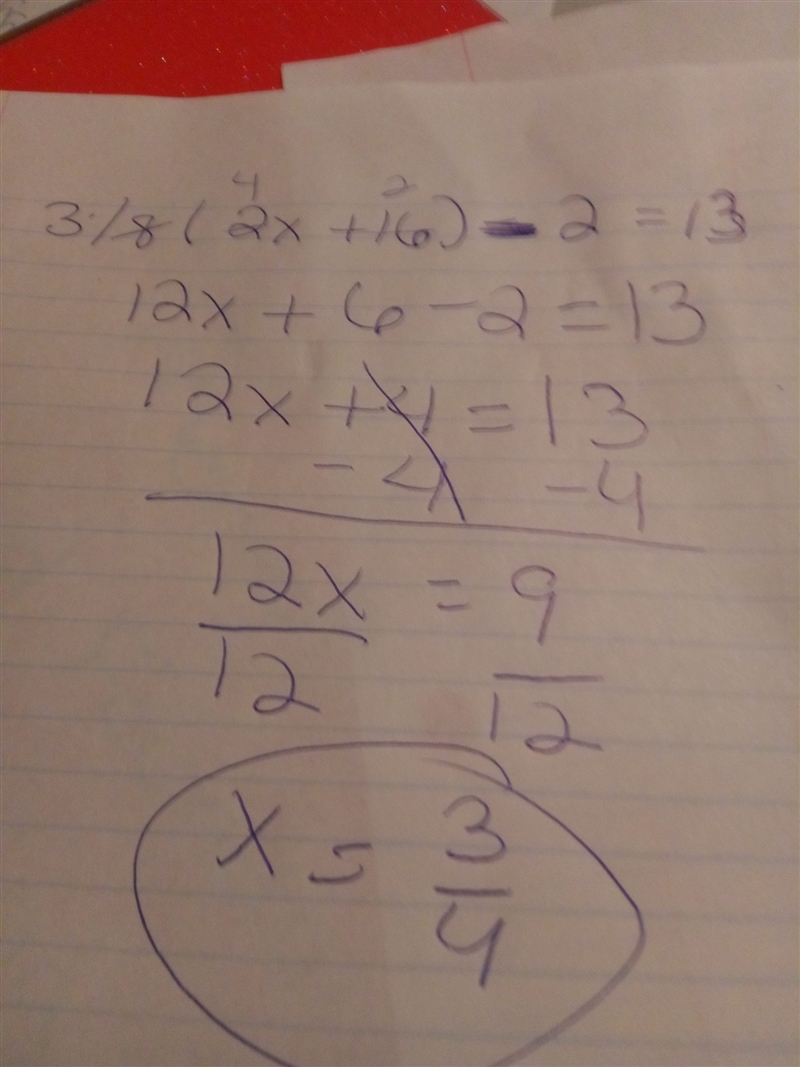 4 2
3/8(2x + 16) - 2 = 13
12x + 6 - 2 = 13
12x + 4 = 13
- 4 - 4
12x = 9
12 12
x = 3
4